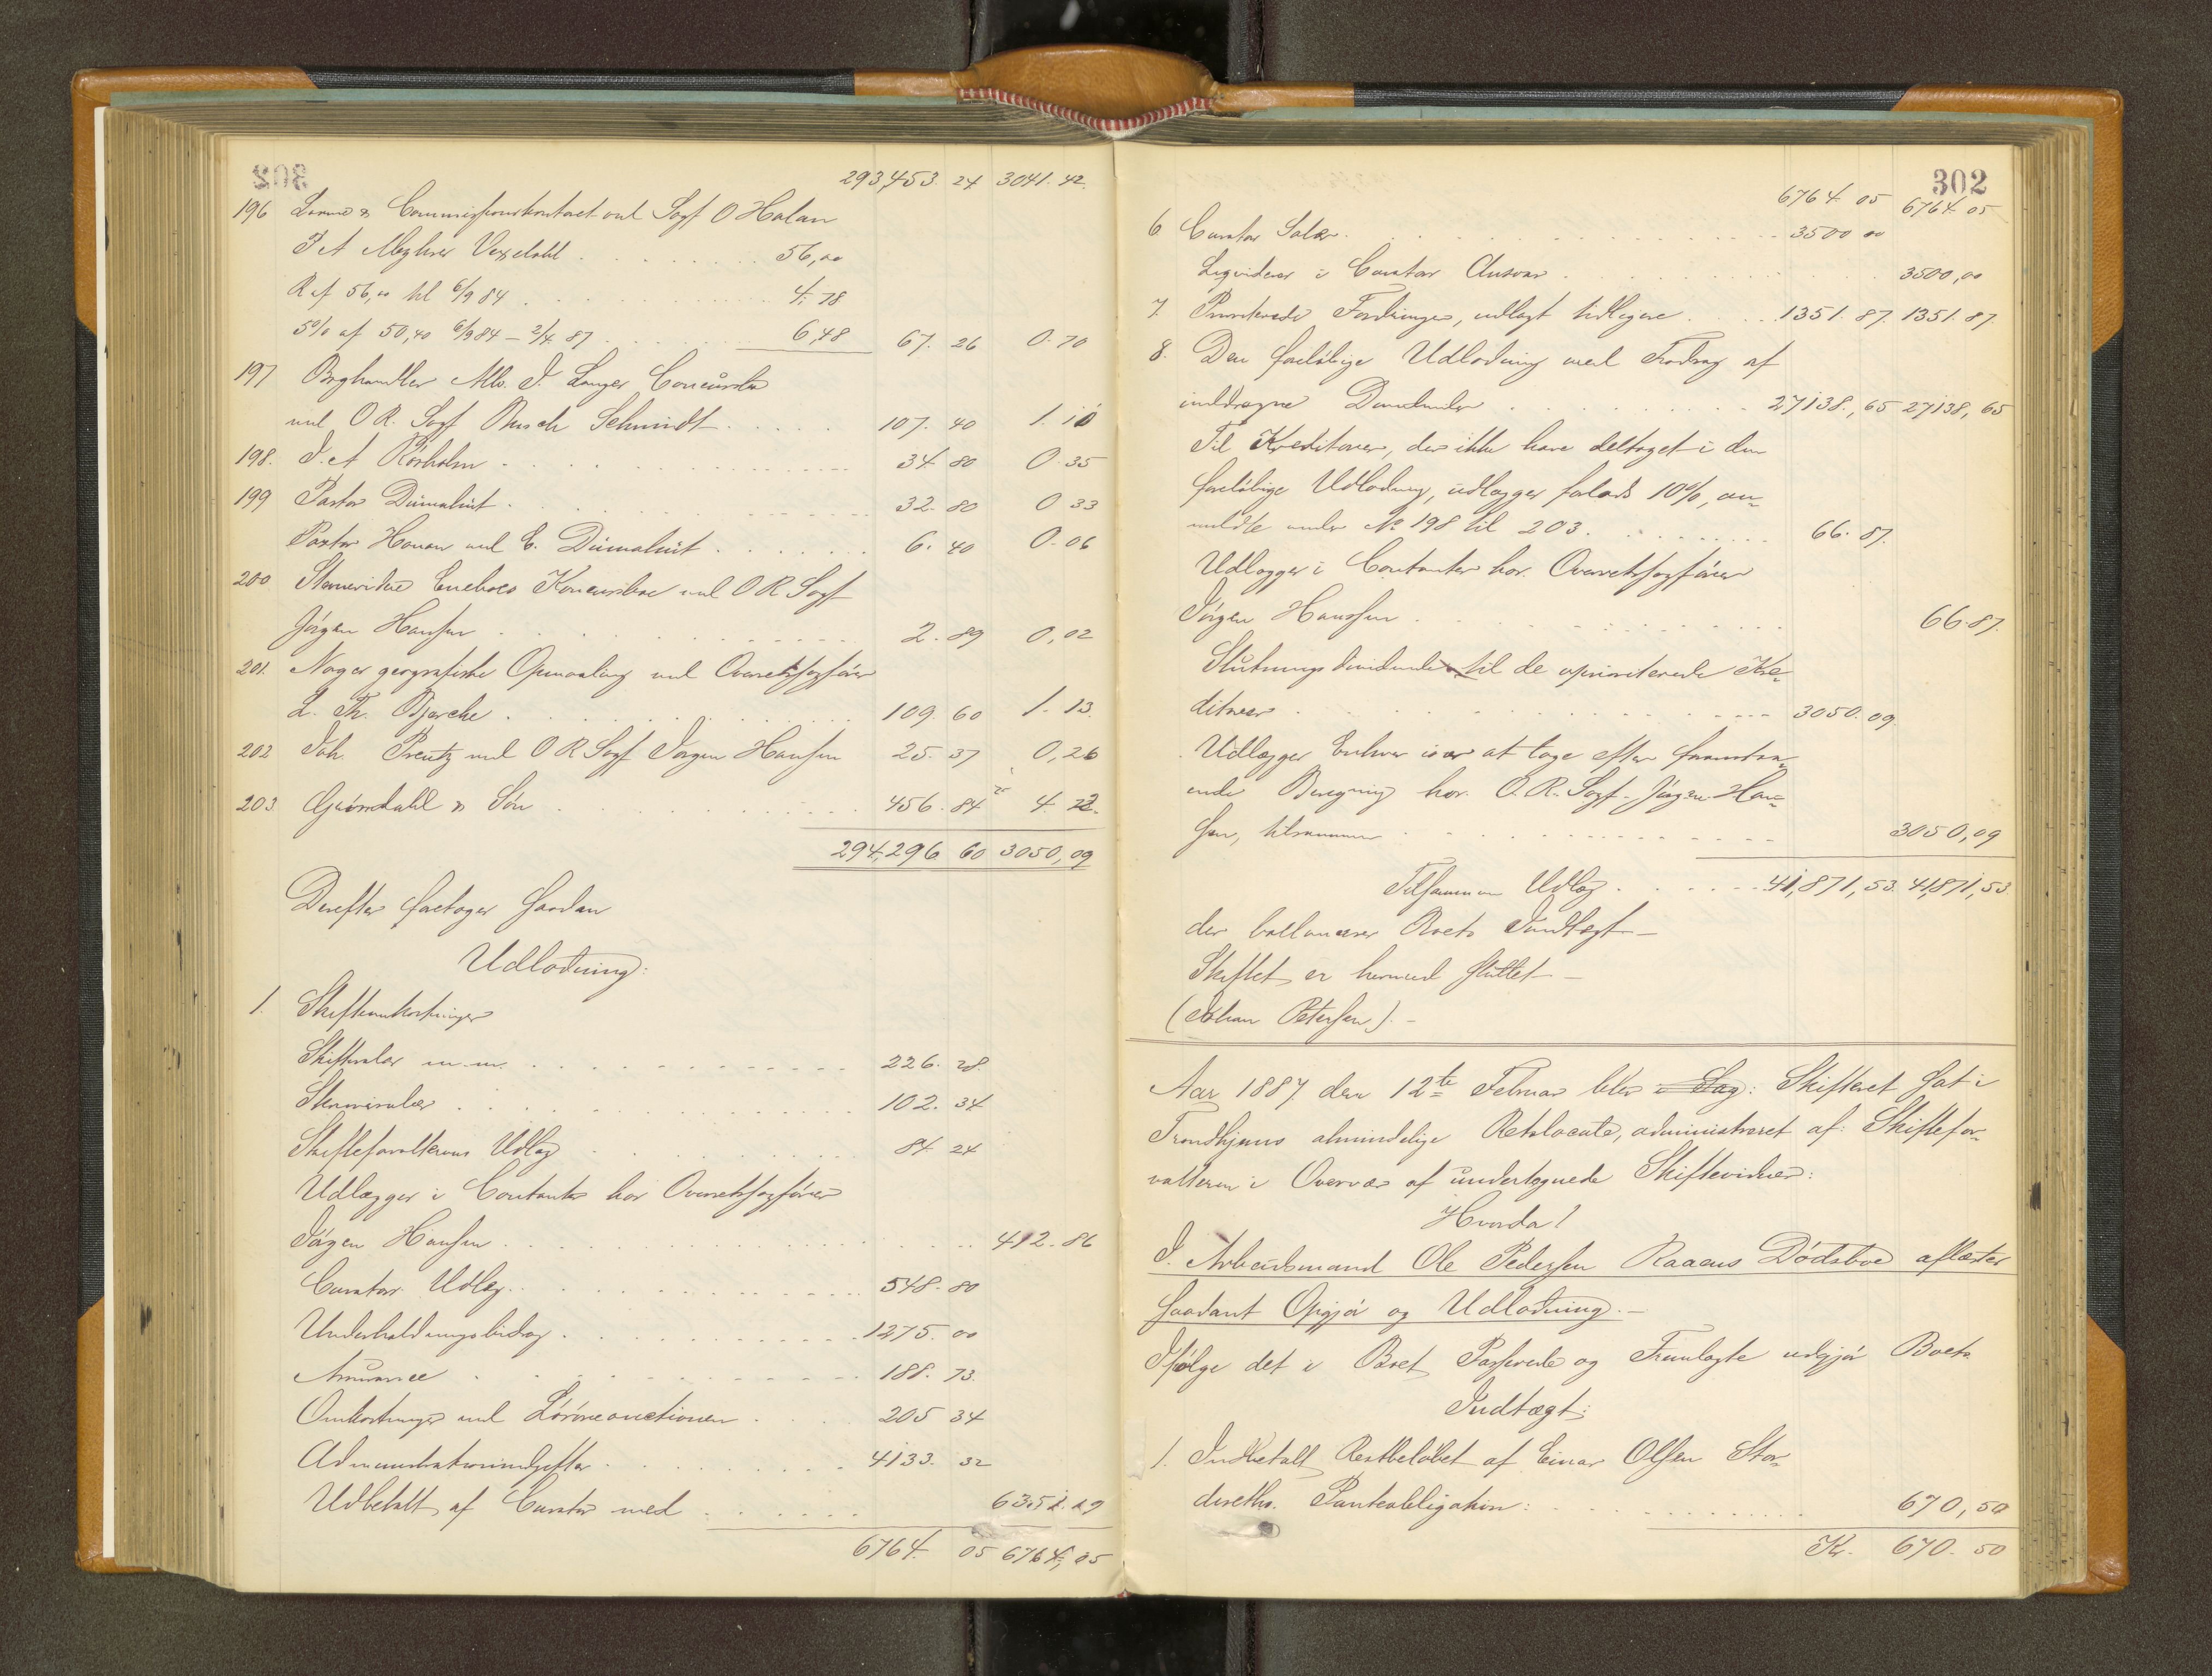 302
293,453. 24 3041. 42.
196 Laane & Commissionskontoret ved Sagf O Halan
J A Meyhrer Vexelobl . . . 56,00
R af 56,00 til 6/9 84 . . . 4.78
5% af 50,40 6/9 84 – 2/4 87 . . . 6,48 67. 26 0.70
197 Boghandler Alb. J. Langes Concursbo
ved O R. Sagf Busch Schmidt . . . 107. 40 1. 10
198. J. A Rörholm . . . 34 80 0 35
199 Pastor . . . 32. 80 0 33
Pastor Hanan ved C. . . . 6. 40 0.06
200 Koncursbo ved O R Sagf
Jörgen Hansen . . . 2. 89 0,02
201. Norges geografiske Opmaaling ved Overretssagförer
L. Th. Bjerche . . . 109. 60 1. 13.
202 Joh. Prentz ved O R Sagf Jörgen Hansen 25. 37 0,26
203. Gröndahl & Sön . . . 456. 84 4. 72.
294,296 60 3050,09
Derefter foretages saadan
Udlodning:
1. Skifteomkostninger
Skiftesalær m.m. . . . 226. 28
Skriversalær . . . 102. 34
Skifteforvalterens Udlæg . . . 84 24
Udlægges i Contanter hos Overretssagförer
Jörgen Hansen . . . 412. 86
Curators Udlæg . . . 548. 80
Underholdningsbidrag . . . 1275. 00
Assurance . . . 188. 73.
Omkostninger ved Lösöreauctionen . . . 205 34
Administrationsudgifter . . . 4133. 32
Udbetalt af Curator med . . . 6351. 19
6764. 05 6764, 05
302
6764. 05 6764. 05
6 Curators Salær . . . 3500 00
Liqvideres i Curators Ansvar . . . 3500,00
7. Prioriterede Fordringer, udlagt tidligere . . . 1351. 87. 1351. 87.
8. Den foreløbige Udlodning med Fradrag af
inddragne . . . 27138,65 27138,65
Til Kreditorer, der ikke have deltaget i den
foreløbige Udlodning, udlægges forlods 10%, an-
meldte under No 198 til 203. . . . 66. 87.
Udlægges i Contanter hos Overretssagförer
Jörgen Hanssen . . . 66.87.
Slutningsdividende til de uprioriterede Kre-
ditorer . . . 3050. 09.
Udlægges Enhver især at tage efter foranstaa-
ende Beregning hos O. R. Sagf. Jörgen Han-
sen, tilsammen . . . 3050,09
Tilsammen Udlæg . . . 41,871,53. 41,871,53.
der ballancerer Boets Indtægt –
Skiftet er hermed sluttet –
(Johan Petersen). –
Aar 1887 den 12te Februar blev i Lag: Skifteret sat i
Trondhjems almindelige Retslocale, administreret af: Skiftefor-
valteren i Overvær af undertegnede Skiftevidner:
Hvorda!
I. Arbeidsmand Ole Pedersen Raaens Dödsboe aflæstes
saadant Opgjör og Udlodning. –
Ifölge det i Boet Passerede og Fremlagte udgjör Boets
Indtægt:
1. Indbetalt Restbelöbet af Einar Olsen Stor-
dureths. Panteobligation: . . . 670,50
Kr. 670. 50